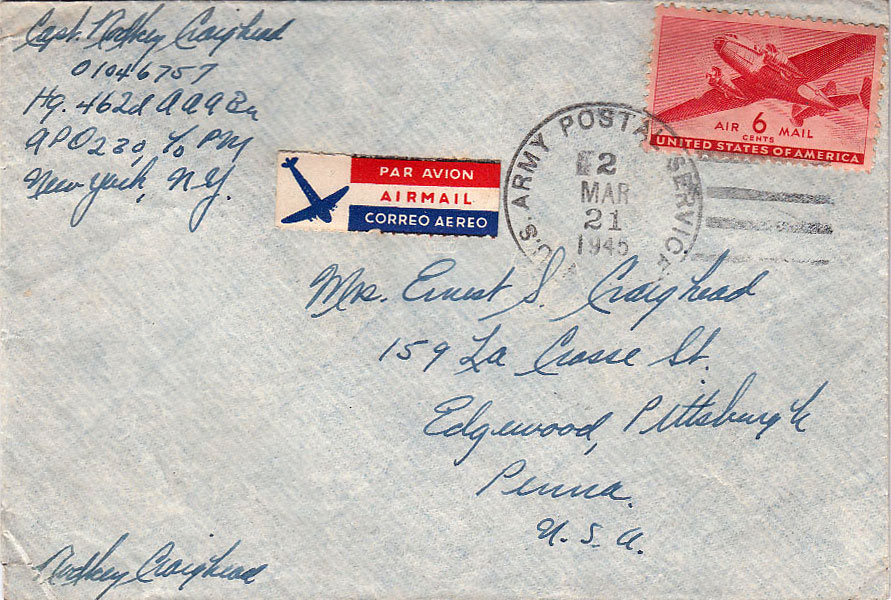 Capt. Rodkey Craighead
01046757
Hq. 462d AAA Bn
APO 230, c/o PM
New York, N.Y.
AIR 6 MAIL
CENTS
UNITED STATES OF AMERICA
PAR AVION
AIRMAIL
CORREO AEREO
U.S. ARMY POSTAL SERVICE
2
MAR
21
1945
Mrs. Ernest S. Craighead
159 La Crosse St.
Edgewood, Pittsburgh
Penna.
U. S. A.
Rodkey Craighead